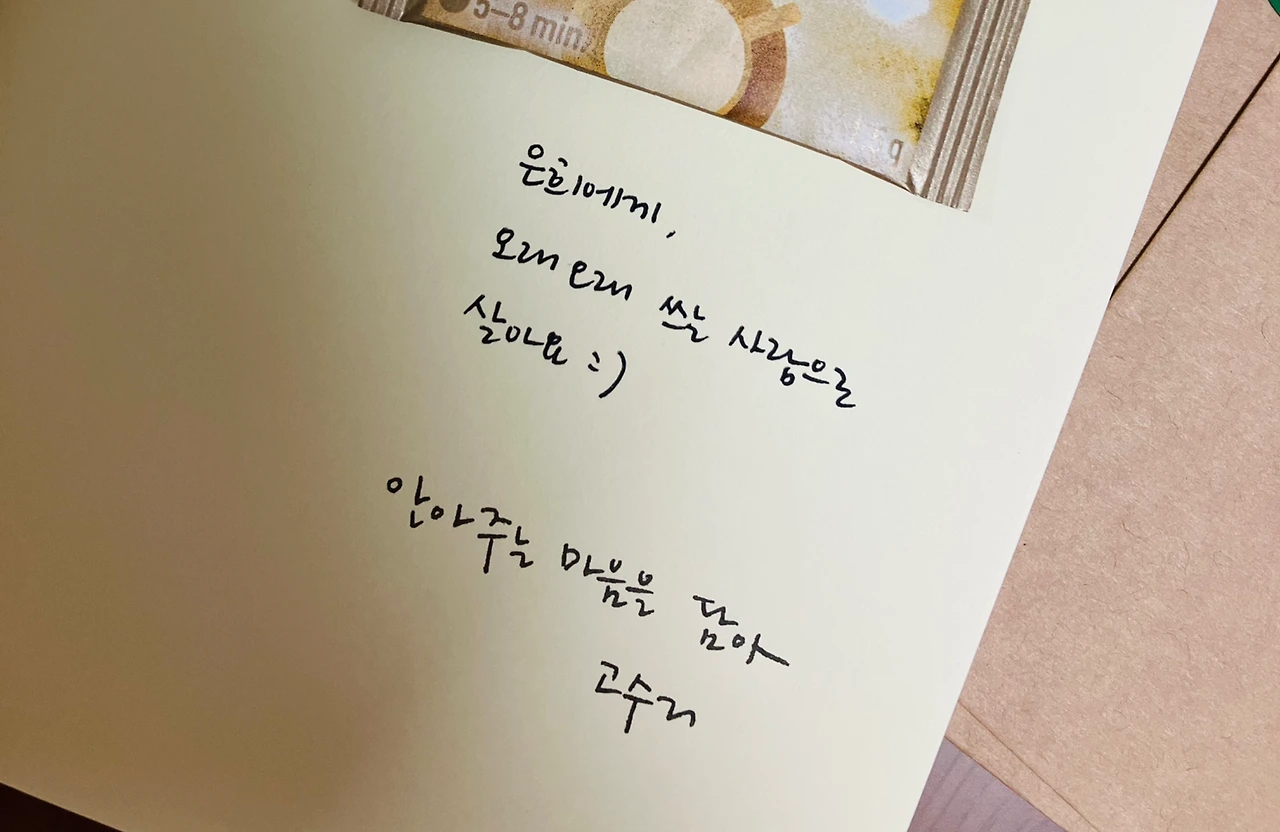 5–8 min
g
은희에게,
오래오래 쓸 사람으로
살아요 :)
안아주는 마음을 담아
고수리